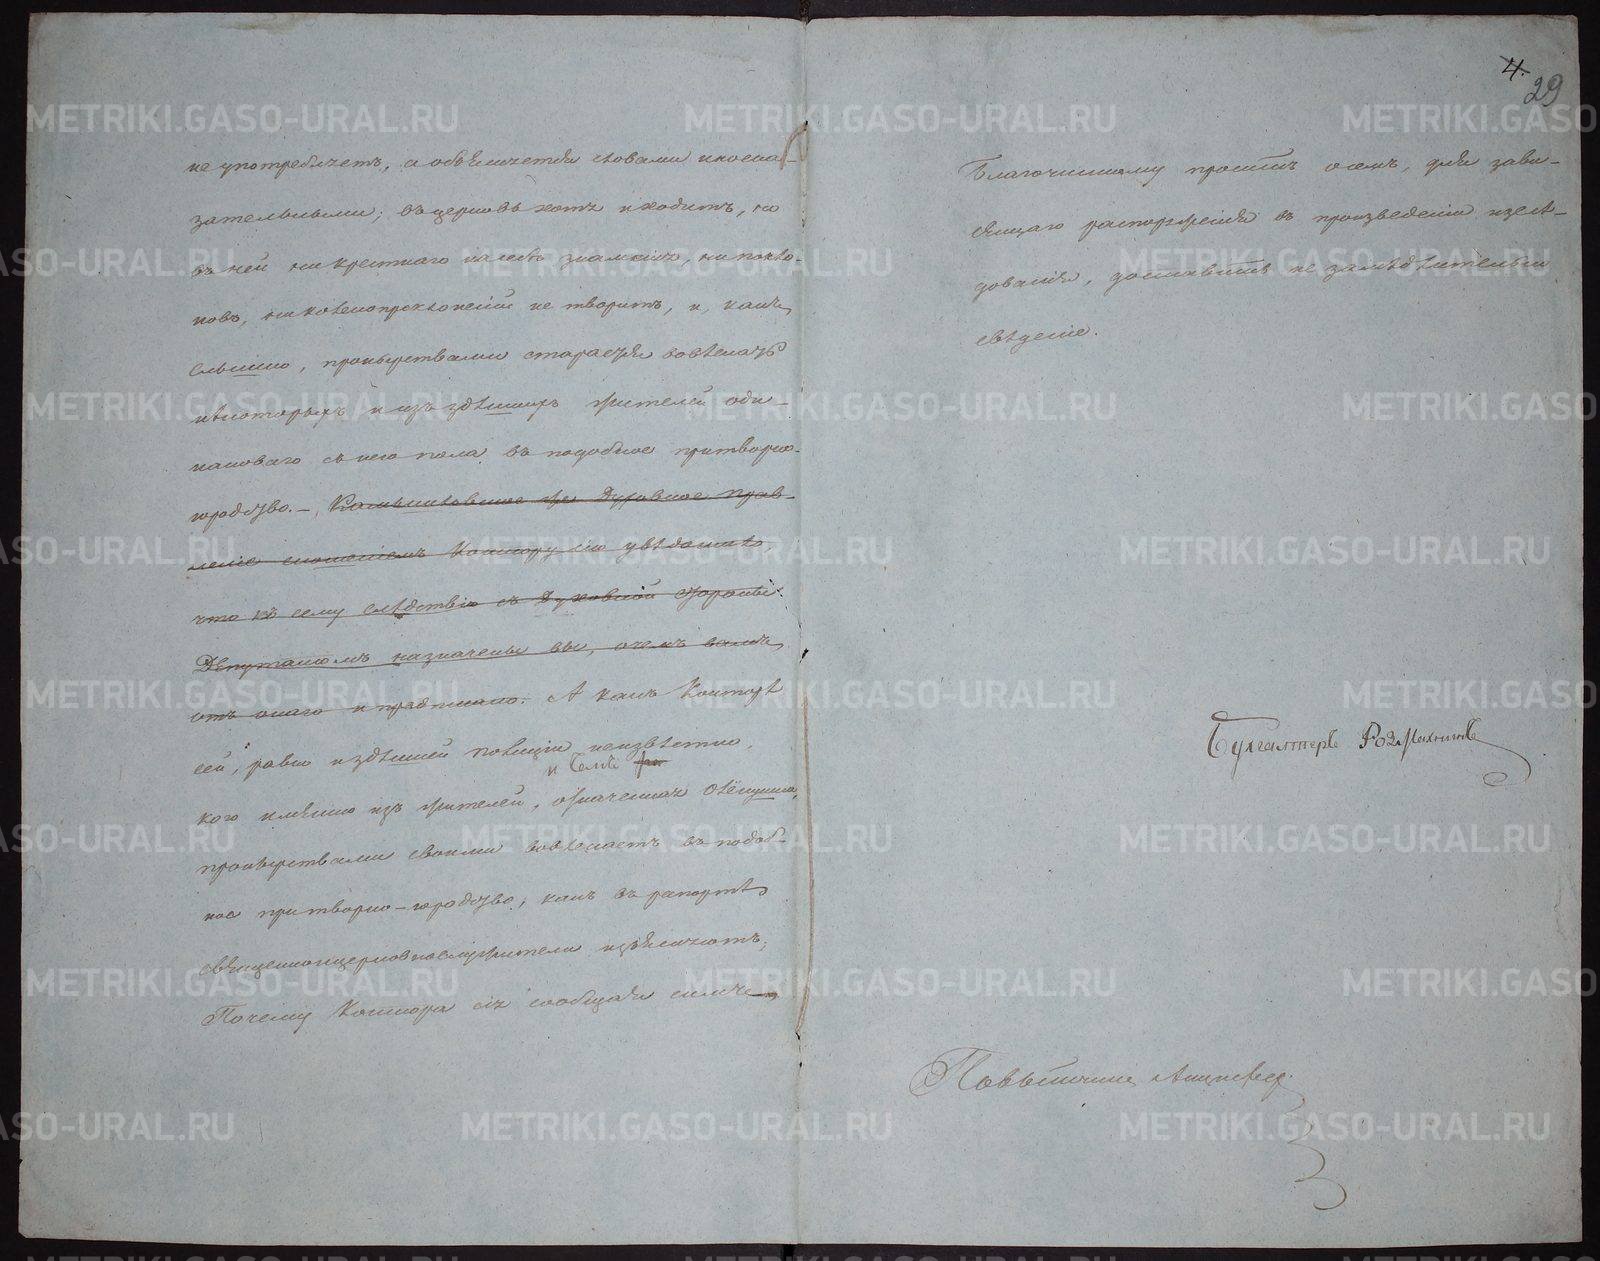 не употребляетъ, а объясняется словами иноска-
зательными; въ церковь хотя и ходитъ, но
въ ней ни крестнаго на себѣ знаменія, ни покло-
новъ, ни колѣнопреклоненій не творитъ, и, какъ
слышно, пронырствами старается вовлекать
нѣкоторыхъ и изъ здѣшнихъ жителей оди-
наковаго съ нею пола въ подобное притворно-
юродство. – Камышловское же Духовное Прав-
леніе сношеніемъ Контору сію увѣдомило,
что къ сему слѣдствію съ Духовной стороны
Депутатомъ назначены вы, о чемъ вамъ
отъ онаго и предписано. А какъ Конторѣ
сей, равно и здѣшней полиціи неизвѣстно,
и чѣмъ
кого имянно изъ жителей, означенная
пронырствами своими вовлекаетъ въ подоб-
ное притворно-юродство, какъ въ рапортѣ
священноцерковнослужители изъясняютъ;
Почему Контора сія сообщая
4.
29
Благочинному проситъ о семъ, для зави-
сящаго распоряженія въ произведеніи изслѣ-
дованія, доставить не замѣдлительно
свѣденіе.
Бухгалтеръ
Повытчикъ
METRIKI.GASO-URAL.RU